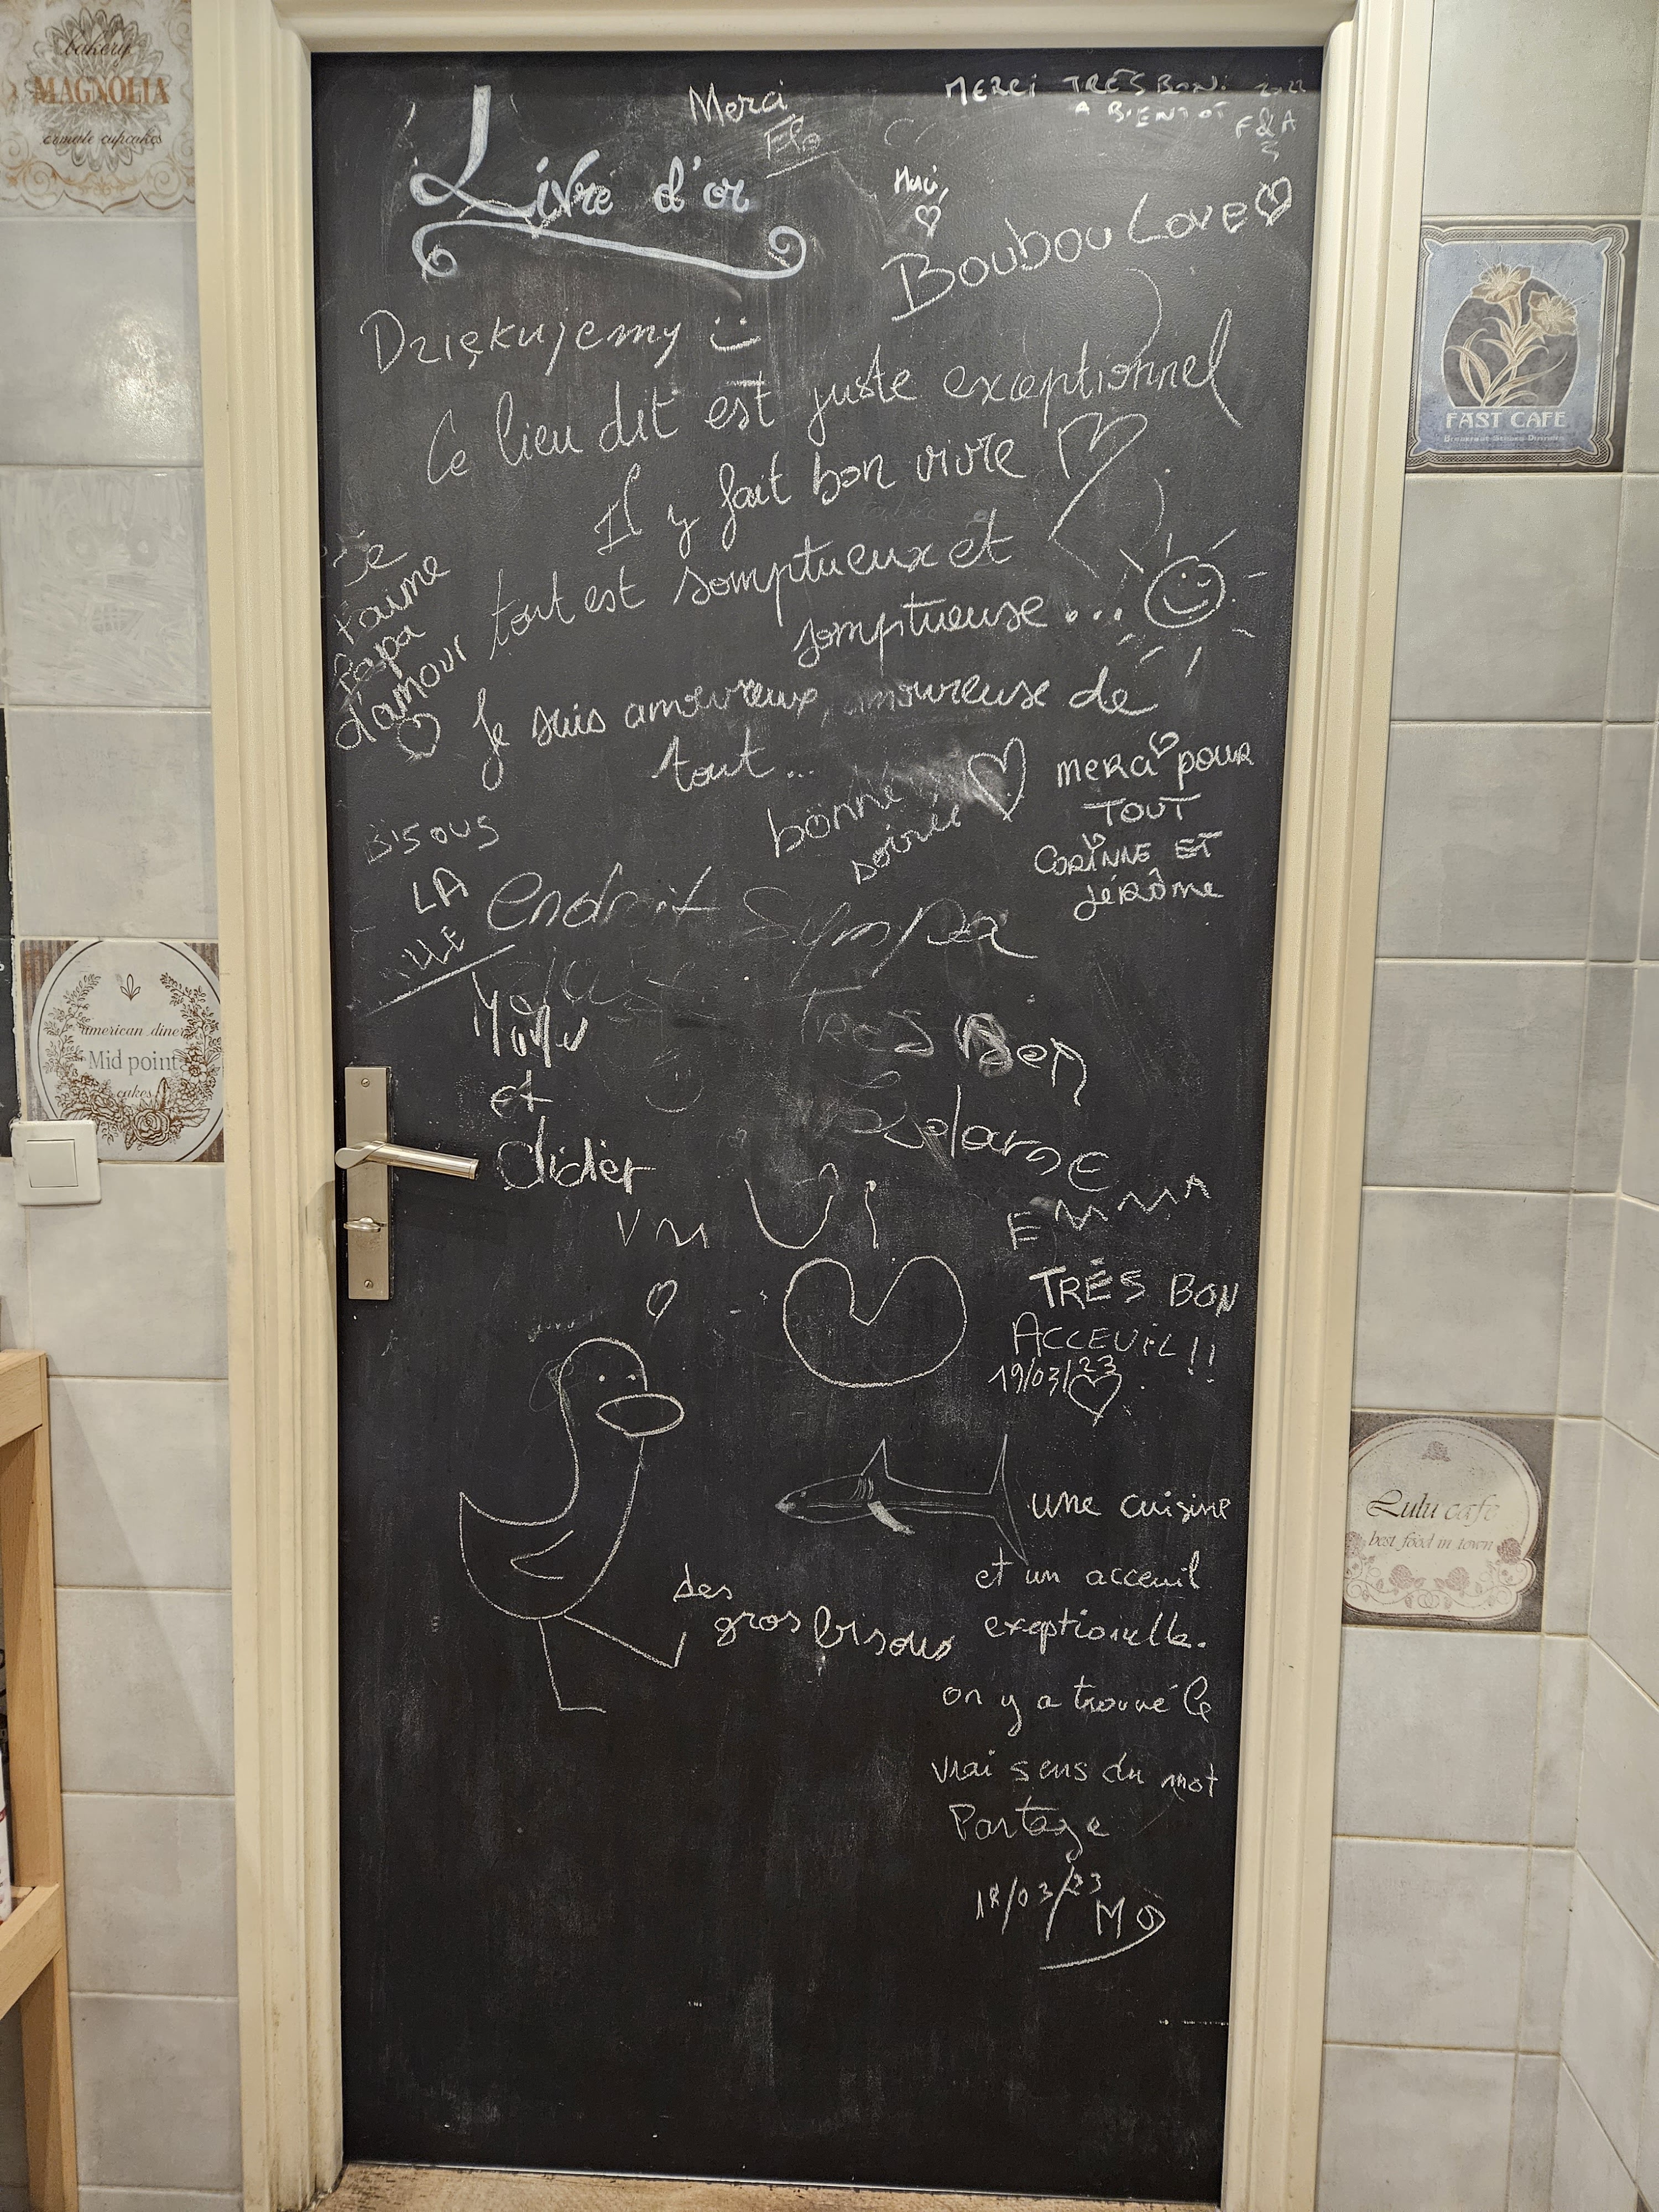 bakery
MAGNOLIA
ornate cupcakes
Merci
Flo
MERCI TRÈS BON! 2022
A BIENTOT
F&A
Livre d'or
Merci
Boubou Love
Dziękujemy
Ce lieu dit est juste exceptionnel
Il y fait bon vivre
tout est somptueux et
somptueuse...
Je
t'aime
Papa
d'amour
Je suis amoureux, amoureuse de
tout...
bonne
soirée
merci pour
TOUT
CORINNE ET
JÉRÔME
Bisous
LA
endroit Sympa
TRES Bon
et
didier
EMMA
TRÈS BON
ACCEUIL!!
19/03/23
une cuisine
et un acceuil
exeptionelle.
on y a trouvé le
vrai sens du mot
Partage
18/03/23
des
gros bisous
FAST CAFE
american diner
Mid point
cakes
Lulu cafe
best food in town